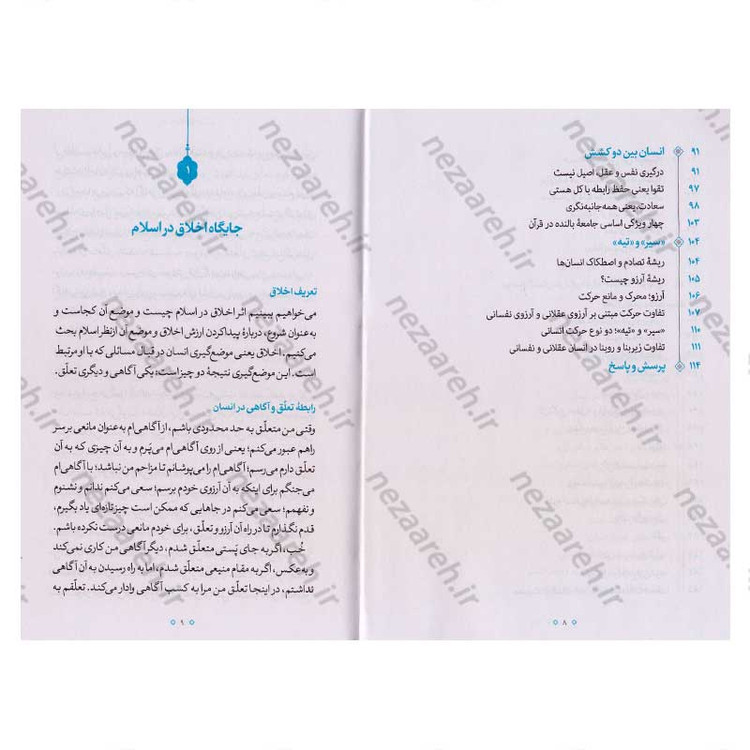 انسان بین دو کشش ۹۱
درگیری نفس و عقل، اصیل نیست ۹۱
تقوا یعنی حفظ رابطه با کل هستی ۹۷
سعادت، یعنی همه‌جانبه‌نگری ۹۸
چهار ویژگی اساسی جامعهٔ بالنده در قرآن ۱۰۳
«سیر» و «تیه» ۱۰۴
ریشهٔ تصادم و اصطکاک انسان‌ها ۱۰۴
ریشهٔ آرزو چیست؟ ۱۰۵
آرزو؛ محرک و مانع حرکت ۱۰۶
تفاوت حرکت مبتنی بر آرزوی عقلانی و آرزوی نفسانی ۱۰۷
«سیر» و «تیه»؛ دو نوع حرکت انسانی ۱۱۰
تفاوت زیربنا و روبنا در انسان عقلانی و نفسانی ۱۱۱
پرسش و پاسخ ۱۱۴
۸
۱
جایگاه اخلاق در اسلام
تعریف اخلاق
می‌خواهیم ببینیم اثر اخلاق در اسلام چیست و موضع آن کجاست و
به‌عنوان شروع، دربارهٔ پیدا کردن ارزش اخلاق و موضع آن از نظر اسلام بحث
می‌کنیم. اخلاق یعنی موضع‌گیری انسان در قبال مسائلی که با او مرتبط
است. این موضع‌گیری نتیجهٔ دو چیز است: یکی آگاهی و دیگری تعلّق.
رابطهٔ تعلّق و آگاهی در انسان
وقتی من متعلّق به حد محدودی باشم، از آگاهی‌ام به‌عنوان مانعی بر سر
راهم عبور می‌کنم؛ یعنی از روی آگاهی‌ام می‌پرم و به آن چیزی که به آن
تعلّق دارم می‌رسم؛ آگاهی‌ام را می‌پوشانم تا مزاحم من نباشد؛ با آگاهی‌ام
می‌جنگم برای اینکه به آن آرزوی خودم برسم؛ سعی می‌کنم ندانم و نشنوم
و نفهمم؛ سعی می‌کنم در جاهایی که ممکن است چیز تازه‌ای یاد بگیرم،
قدم نگذارم تا در راه آن آرزو و تعلّق، برای خودم مانعی درست نکرده باشم.
خُب، اگر به جای پَستی متعلّق شدم، دیگر آگاهی من کاری نمی‌کند
و به‌عکس، اگر به مقام منیعی متعلّق شدم، اما به راه رسیدن به آن آگاهی
نداشتم، در اینجا تعلّق من مرا به کسب آگاهی وادار می‌کند. تعلّقم به
۹
nezaareh.ir
nezaareh.ir
nezaareh.ir
nezaareh.ir
nezaareh.ir
nezaareh.ir
nezaareh.ir